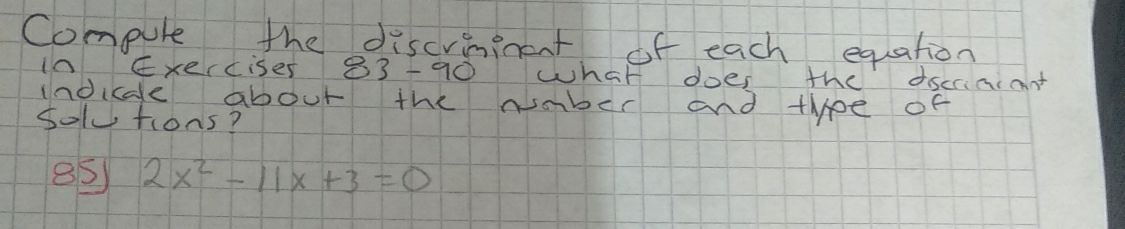 Compute the discriminant of each equation
in Exercises 83-90 what does the dscriminant
indicate about the number and type of
Solutions?
85) 2x² - 11x + 3 = 0